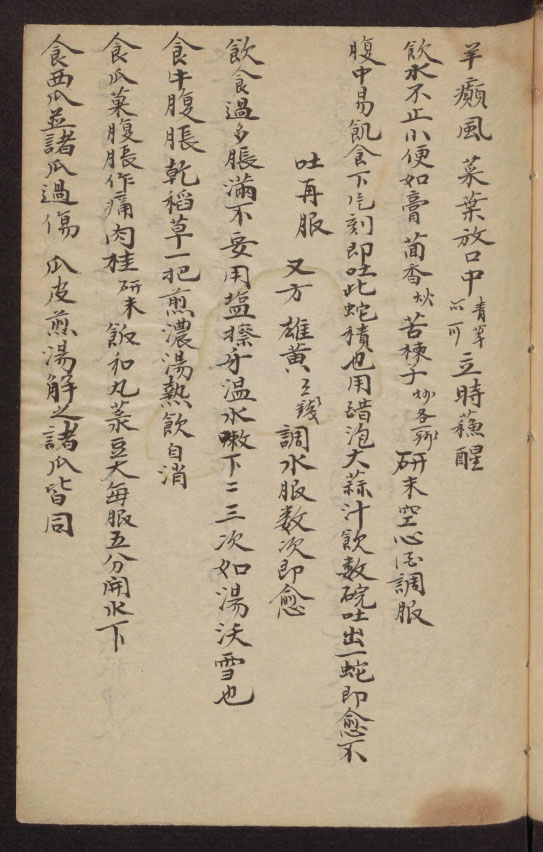 羊癲風 菜葉放口中青草亦可立時蘓醒
飲水不止小便如膏 茴香炒苦楝子炒各研末空心酒調服
腹中易飢食下片刻即吐此蛇積也用醋泡大蒜汁飲数碗吐出一蛇即愈不
吐再服 又方 雄黃錢調水服数次即愈
飲食過多脹滿不妥用塩擦牙温水嗽下二三次如湯沃雪也
食牛腹脹 乾稻草一把煎濃湯熱飲自消
食瓜菓腹脹作痛肉桂研末飯和丸菉豆大每服五分開水下
食西瓜並諸瓜過傷 瓜皮煎湯解之諸瓜皆同